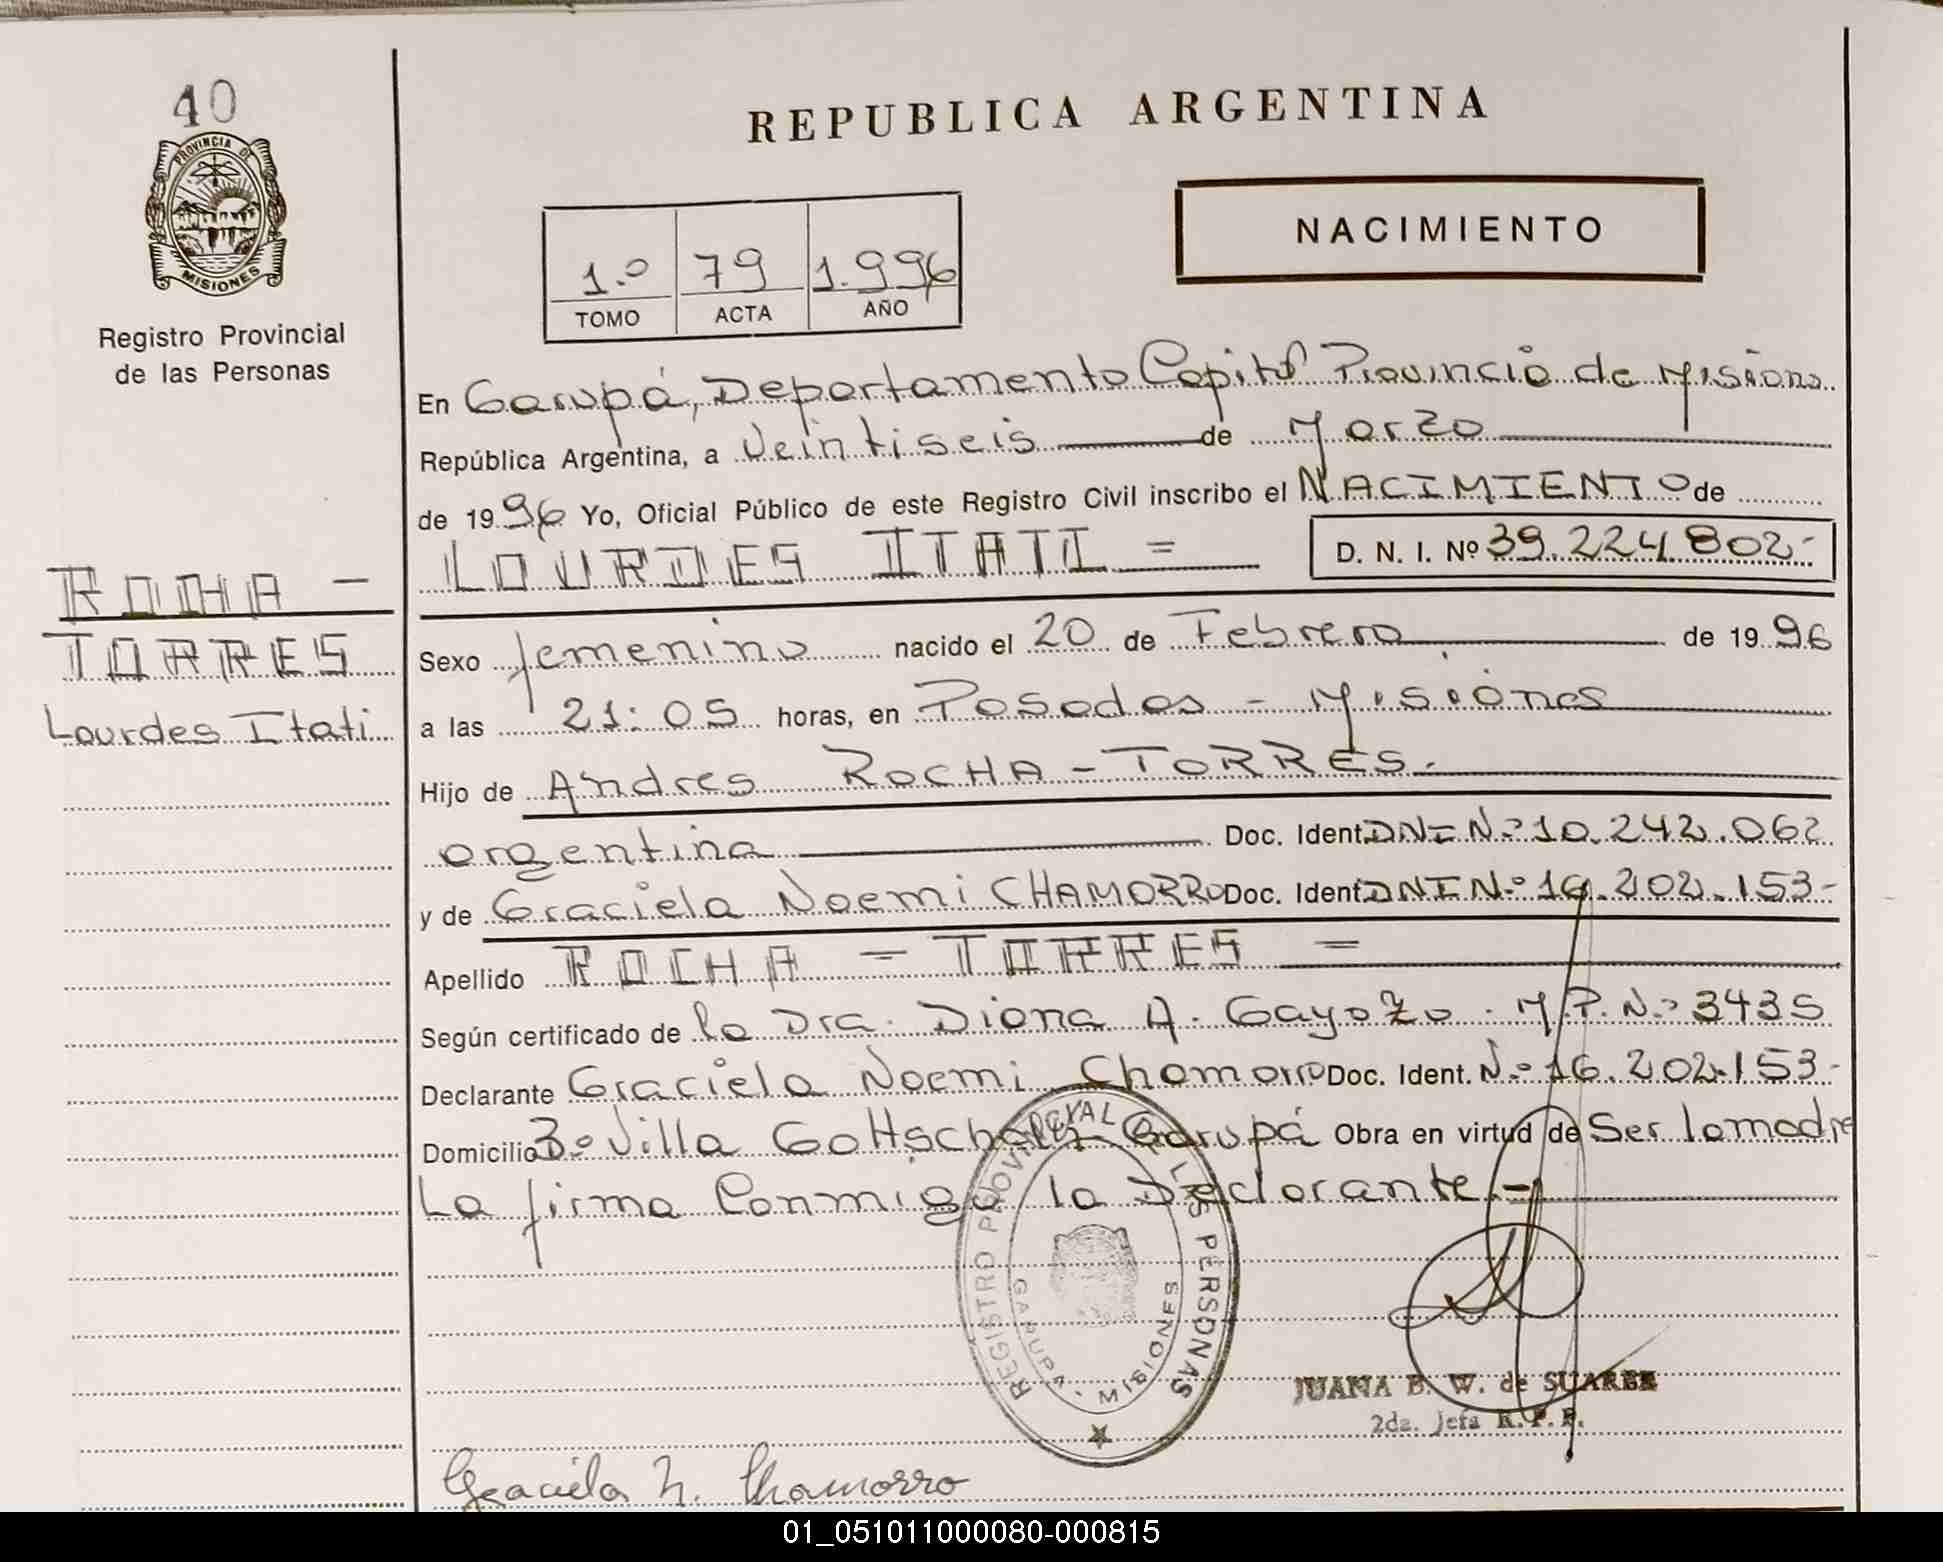 40
PROVINCIA DE
MISIONES
Registro Provincial
de las Personas
ROCHA -
TORRES
Lourdes Itati
REPUBLICA ARGENTINA
NACIMIENTO
1.º 79 1.996
TOMO ACTA AÑO
En Garupá, Departamento Capital Provincia de Misiones
República Argentina, a Veintiseis de Marzo
de 1996 Yo, Oficial Público de este Registro Civil inscribo el NACIMIENTO de
LOURDES ITATI = D. N. I. Nº 39.224.802-
Sexo femenino nacido el 20 de Febrero de 1996
a las 21:05 horas, en Posadas - Misiones
Hijo de Andres ROCHA - TORRES.
argentina Doc. Ident. DNI N.º 10.242.062
y de Graciela Noemi CHAMORRO Doc. Ident. DNI N.º 16.202.153-
Apellido ROCHA - TORRES =
Según certificado de la Dra. Diana A. Gayozo. M.P.N.º 3435
Declarante Graciela Noemi Chamorro Doc. Ident. N.º 16.202.153-
Domicilio Bº Villa Gottschalk Garupá Obra en virtud de Ser la madre
La firma Conmigo la Declarante.-
REGISTRO PROVINCIAL DE LAS PERSONAS
GARUPA - MISIONES
JUANA B. W. de SUAREZ
2da. Jefa R.P.P.
Graciela N. Chamorro
01_051011000080-000815